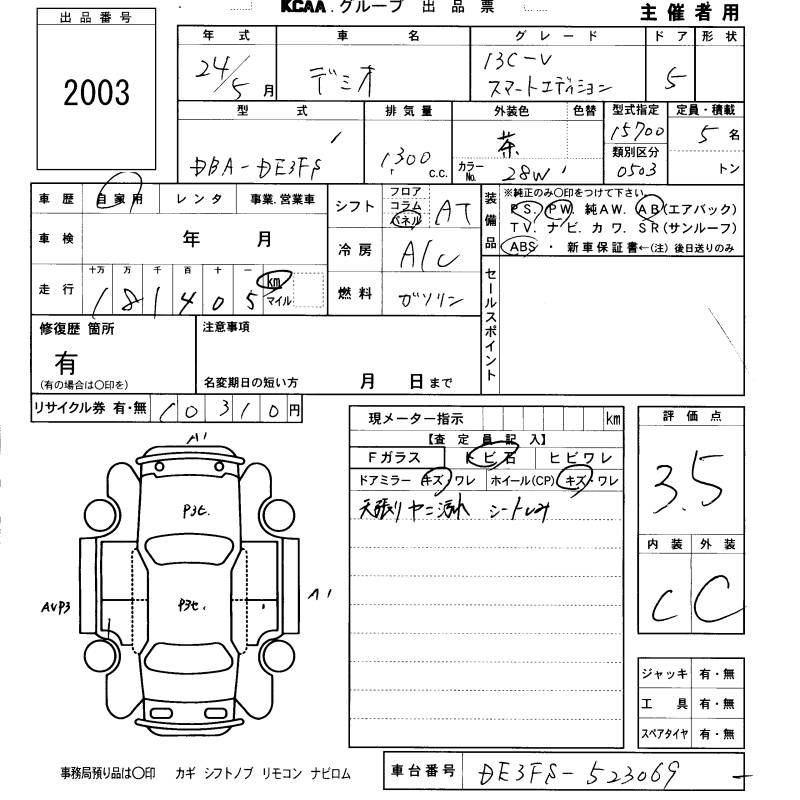 KCAA.グループ 出品票
主催者用
出品番号
2003
年式 車名 グレード ドア 形状
24/5月 デミオ 13C-V
スマートエディション 5
型式 排気量 外装色 色替 型式指定 定員・積載
DBA-DE3FS 1300 c.c. 茶 15700 5名
カラーNo. 28W 類別区分 0503 トン
車歴 自家用 レンタ 事業.営業車
車検 年 月
走行 十万 万 千 百 十 一
181405 km マイル
シフト フロア コラム パネル AT
冷房 A/C
燃料 ガソリン
装備品 ※純正のみ〇印をつけて下さい
PS. PW. 純AW. AB(エアバック)
TV. ナビ. カワ. SR(サンルーフ)
ABS ・ 新車保証書←(注) 後日送りのみ
セールスポイント
修復歴 箇所
有
(有の場合は〇印を)
注意事項
名変期日の短い方 月 日まで
リサイクル券 有・無 10310円
現メーター指示 km
【査定員記入】
Fガラス トビ石 ヒビワレ
ドアミラー キズ・ワレ ホイール(CP) キズ・ワレ
天張りヤニ汚れ シートしみ
評価点
3.5
内装 外装
C C
A1
P3t.
P3t.
AVP3
A1
ジャッキ 有・無
工具 有・無
スペアタイヤ 有・無
事務局預り品は〇印 カギ シフトノブ リモコン ナビロム
車台番号 DE3FS-523069